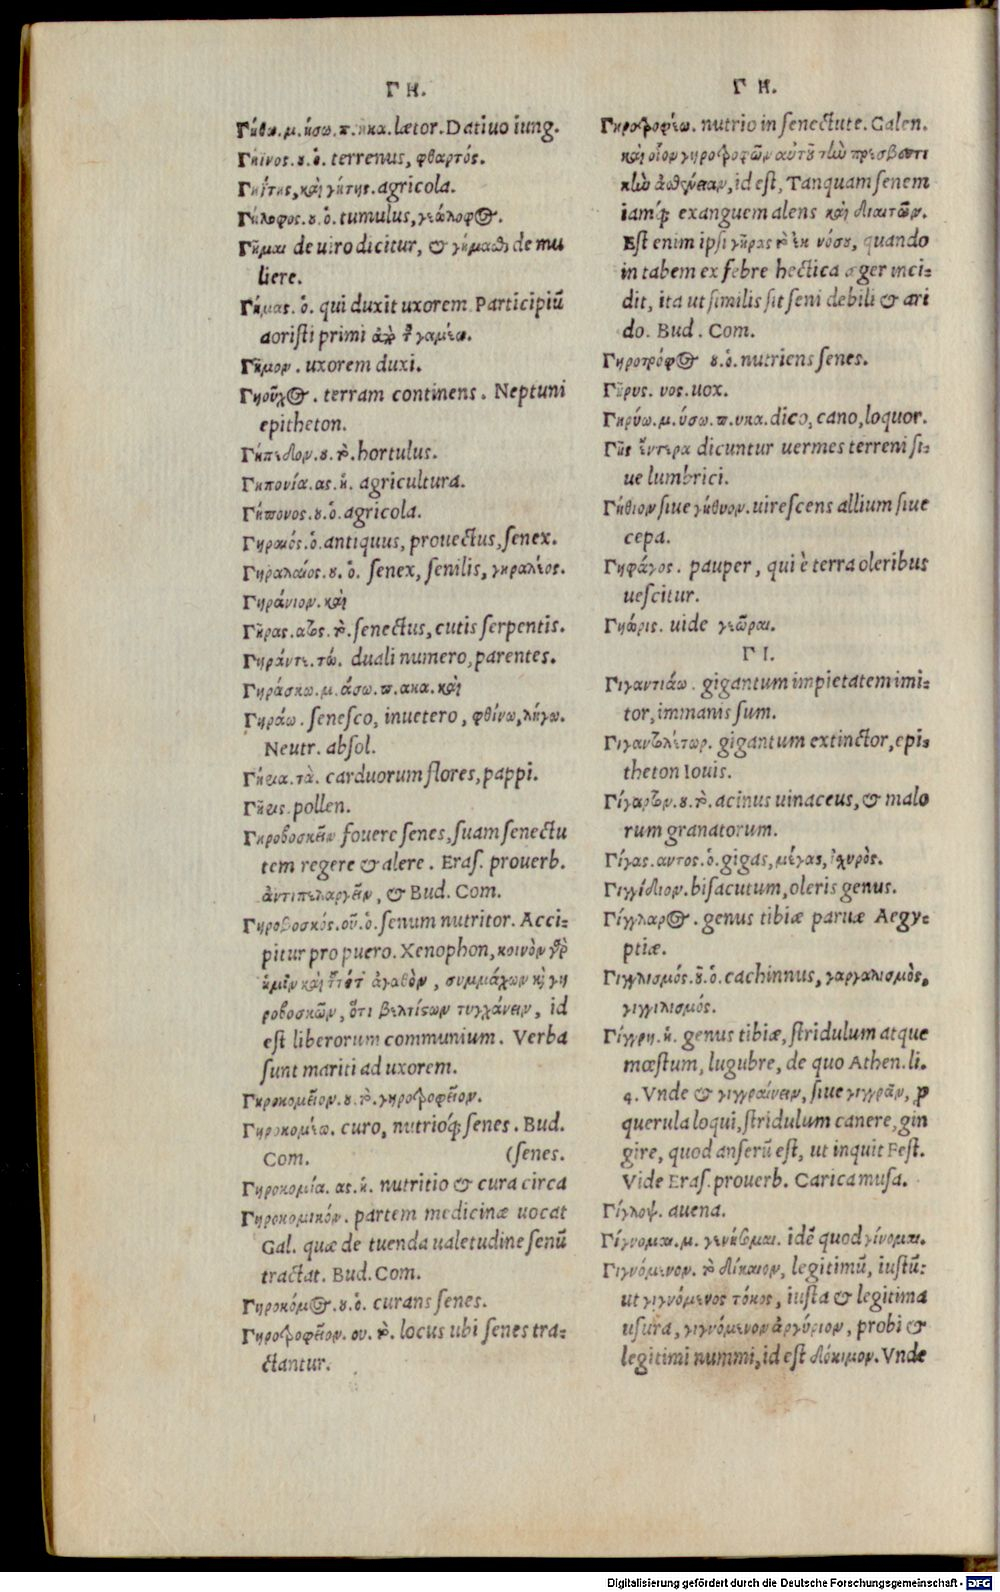 ΓΗ.
Γήθω.μ.ήσω.π.ηκα.lætor.Datiuo iung.
Γήϊνος.ου.ὁ. terrenus, φθαρτός.
Γηΐτης, καὶ γήτης. agricola.
Γήλοφος.ου.ὁ. tumulus, γεάλοφος.
Γῆμαι de uiro dicitur, & γήμαθαι de mu
liere.
Γήμας. ὁ. qui duxit uxorem Participiũ
aoristi primi τοῦ γαμέω.
Γῆμον. uxorem duxi.
Γηοῦχος. terram continens. Neptuni
epitheton.
Γήπεδον.ου.τὸ. hortulus.
Γηπονία.ας.ἡ. agricultura.
Γήπονος.ου.ὁ. agricola.
Γηραιός.ὁ. antiquus, prouectus, senex.
Γηραλαῖος.ου.ὁ. senex, senilis, γηραλέος.
Γηράνιον. καὶ
Γῆρας.ατος.τὸ. senectus, cutis serpentis.
Γηράντε.τώ. duali numero, parentes.
Γηράσκω.μ.άσω.π.ακα.καὶ
Γηράω. senesco, inuetero, φθίνω, λήγω.
Neutr. absol.
Γήεια.τὰ. carduorum flores, pappi.
Γῆεις. pollen.
Γηροβοσκεῖν fouere senes, suam senectu
tem regere & alere. Eras. prouerb.
ἀντιπελαργεῖν, & Bud. Com.
Γηροβοσκός.οῦ.ὁ. senum nutritor. Acci-
pitur pro puero. Xenophon, κοινὸν γὰρ
ἡμῖν καὶ τοῦτο ἀγαθὸν, συμμάχων καὶ γη
ροβοσκῶν, ὅτι βελτίστων τυγχάνειν, id
est liberorum communium. Verba
sunt mariti ad uxorem.
Γηροκομεῖον.ου.τὸ. γηροτροφεῖον.
Γηροκομέω. curo, nutrioq́; senes. Bud.
Com. (senes.
Γηροκομία. ας.ἡ. nutritio & cura circa
Γηροκομικόν. partem medicinæ uocat
Gal. quæ de tuenda ualetudine senũ
tractat. Bud. Com.
Γηροκόμος.ου.ὁ. curans senes.
Γηροτροφεῖον. ου. τὸ. locus ubi senes tra-
ctantur.
ΓΗ.
Γηροτροφέω. nutrio in senectute. Galen.
καὶ οἷον γηροτροφῶν αὐτοῦ τὴν πρεσβυτι
κὴν ἀσθένειαν, id est, Tanquam senem
iamq́; exanguem alens καὶ διαιτῶν.
Est enim ipsi γῆρας τὸ ἐκ νόσου, quando
in tabem ex febre hectica æger inci-
dit, ita ut similis sit seni debili & ari
do. Bud. Com.
Γηροτρόφος ου.ὁ. nutriens senes.
Γῆρυς. υος. uox.
Γηρύω.μ.ύσω.π.υκα. dico, cano, loquor.
Γῆς ἔντερα dicuntur uermes terreni si-
ue lumbrici.
Γήθιον siue γήθυον. uirescens allium siue
cepa.
Γηφάγος. pauper, qui è terra oleribus
uescitur.
Γηώρις. uide γεῶραι.
ΓΙ.
Γιγαντιάω. gigantum impietatem imi-
tor, immanis sum.
Γιγαντολέτωρ. gigantum extinctor, epi-
theton Iouis.
Γίγαρτον.ου.τὸ. acinus uinaceus, & malo
rum granatorum.
Γίγας.αντος.ὁ. gigas, μέγας, ἰσχυρὸς.
Γιγγίδιον. bisacutum, oleris genus.
Γίγγλαρος. genus tibiæ paruæ Aegy-
ptiæ.
Γιγγλισμός.οῦ.ὁ. cachinnus, γαργαλισμὸς,
γιγγιλισμός.
Γίγγρη.ἡ. genus tibiæ, stridulum atque
mœstum, lugubre, de quo Athen. li.
4. Vnde & γιγγραίνειν, siue γιγγρᾶν, ꝓ
querula loqui, stridulum canere, gin
gire, quod anserũ est, ut inquit Fest.
Vide Eras. prouerb. Carica musa.
Γίγλοψ. auena.
Γίγνομαι.μ. γενήσομαι. idẽ quod γίνομαι.
Γιγνόμενον. τὸ δίκαιον, legitimũ, iustũ:
ut γιγνόμενος τόκος, iusta & legitima
usura, γιγνόμενον ἀργύριον, probi &
legitimi nummi, id est δόκιμον. Vnde
Digitalisierung gefördert durch die Deutsche Forschungsgemeinschaft - DFG